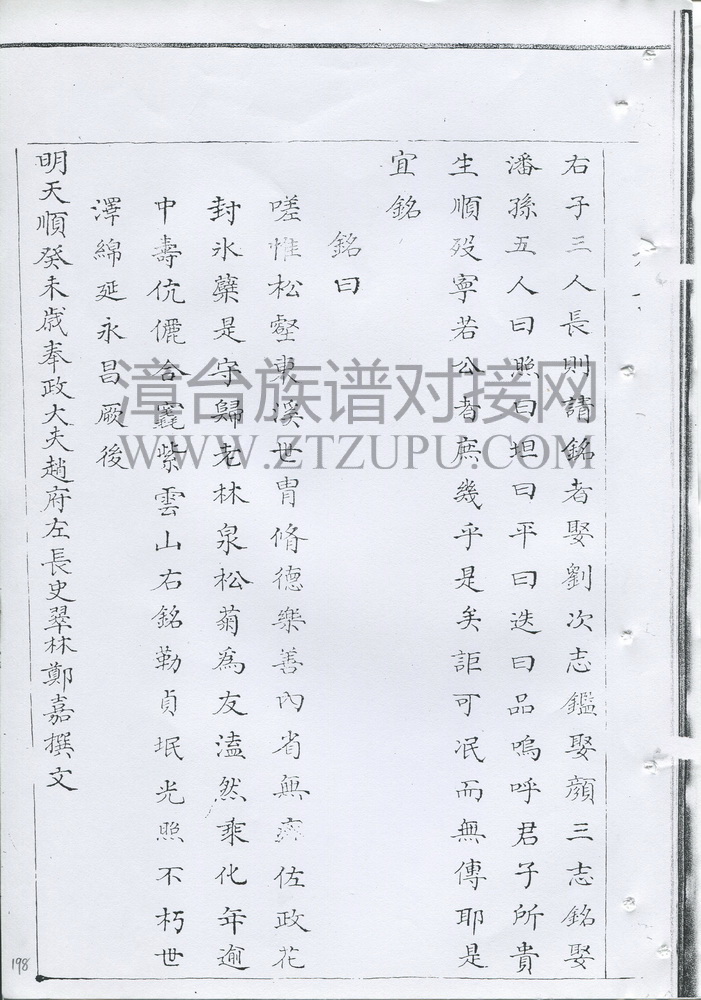 右子三人長則請銘者娶劉次志鑑娶顏三志銘娶
潘孫五人曰照曰坦曰平曰迭曰品嗚呼君子所貴
生順歿寧若公者庶幾乎是矣詎可泯而無傳耶是
宜銘
銘曰
嗟惟松壑東溪世胄脩德樂善內省無疚佐政花
封氷蘗是守歸老林泉松菊為友溘然乘化年逾
中壽伉儷合窆紫雲山右銘勒貞珉光照不朽世
澤綿延永昌厥後
明天順癸未歲奉政大夫趙府左長史翠林鄭嘉撰文
漳台族谱对接网
WWW.ZTZUPU.COM
198